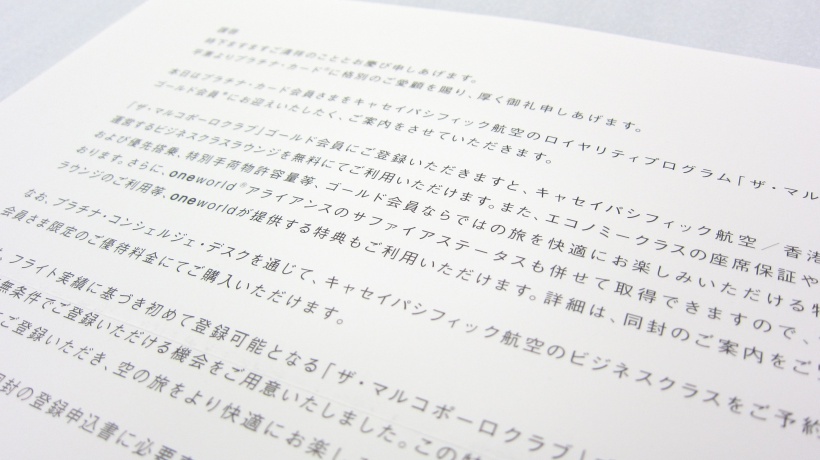 謹啓
時下ますますご清祥のこととお慶び申しあげます。
平素よりプラチナ・カード®に格別のご愛顧を賜り、厚く御礼申しあげます。
本日はプラチナ・カード会員さまをキャセイパシフィック航空のロイヤリティプログラム「ザ・マル
ゴールド会員*にお迎えいたしたく、ご案内をさせていただきます。
「ザ・マルコポーロクラブ」ゴールド会員にご登録いただきますと、キャセイパシフィック航空／香港
運営するビジネスクラスラウンジを無料にてご利用いただけます。また、エコノミークラスの座席保証や
および優先搭乗、特別手荷物許容量等、ゴールド会員ならではの旅を快適にお楽しみいただける特
おります。さらに、oneworld®アライアンスのサファイアステータスも併せて取得できますので、
ラウンジのご利用等、oneworldが提供する特典もご利用いただけます。詳細は、同封のご案内をご
なお、プラチナ・コンシェルジェ・デスクを通じて、キャセイパシフィック航空のビジネスクラスをご予約
会員さま限定のご優待料金にてご購入いただけます。
フライト実績に基づき初めて登録可能となる「ザ・マルコポーロクラブ」
無条件でご登録いただける機会をご用意いたしました。この特
ご登録いただき、空の旅をより快適にお楽し
同封の登録申込書に必要